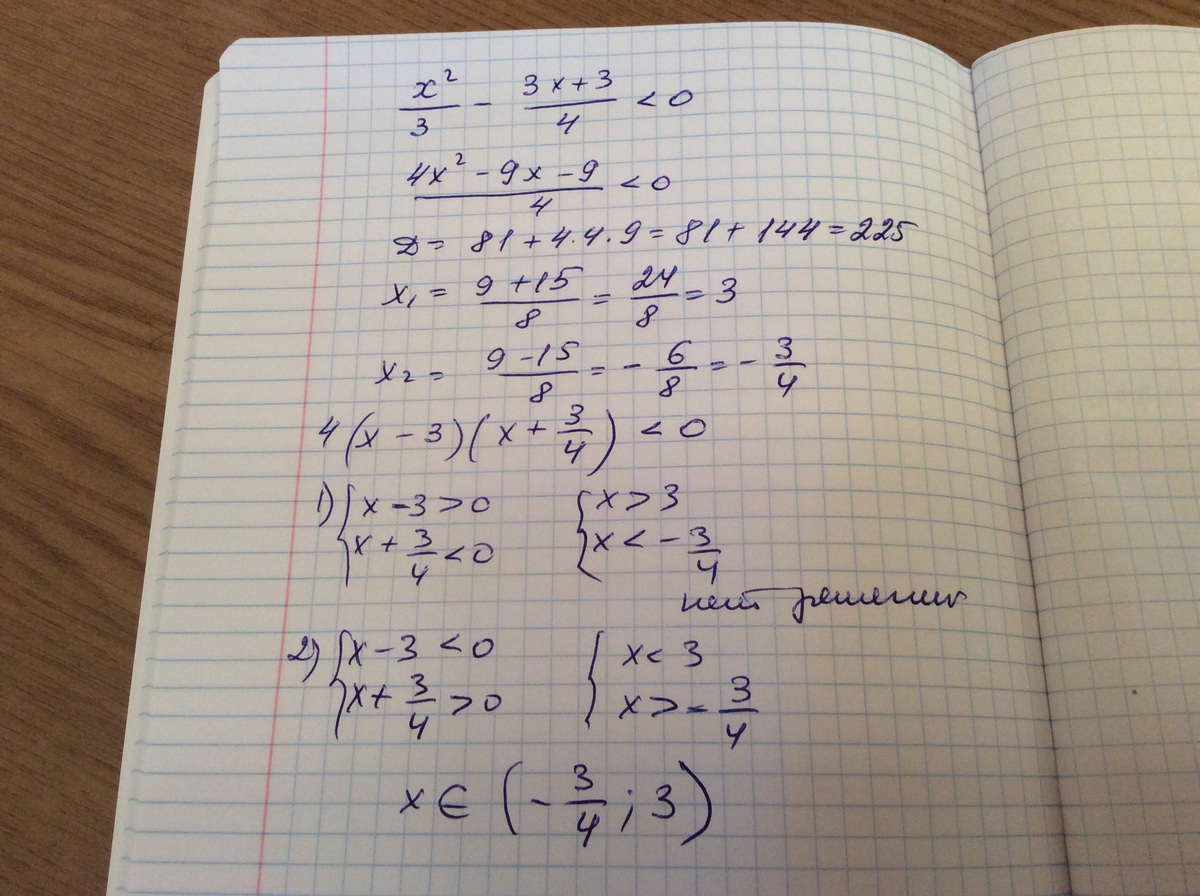 x²/3 - (3x+3)/4 < 0
(4x² - 9x - 9)/4 < 0
D = 81 + 4·4·9 = 81 + 144 = 225
x₁ = (9+15)/8 = 24/8 = 3
x₂ = (9-15)/8 = - 6/8 = - 3/4
4(x - 3)(x + 3/4) < 0
1) { x - 3 > 0 { x > 3
x + 3/4 < 0 x < - 3/4
нет решения
2) { x - 3 < 0 { x < 3
x + 3/4 > 0 x > - 3/4
x ∈ (- 3/4 ; 3)